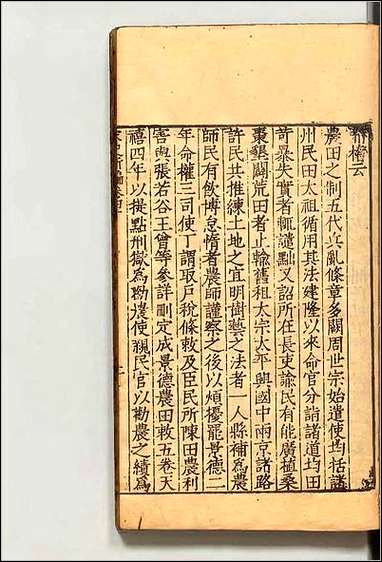 云
農田之制五代兵亂條章多闕周世宗始遣使均括諸
州民田太祖循用其法建隆以來命官分詣諸道均田
苛暴失實者輒譴黜又詔所在長吏諭民有能廣植桑
棗墾闢荒田者止輸舊租太宗太平興國中兩京諸路
許民共推練土地之宜明樹藝之法者一人縣補為農
師民有飲博怠惰者農師謹察之後以煩擾罷景德二
年命權三司使丁謂取戶稅條敕及臣民所陳田農利
害與張若谷王曾等參詳刪定成景德農田敕五卷天
禧四年以提點刑獄為勸農使親民官以勸農之績為